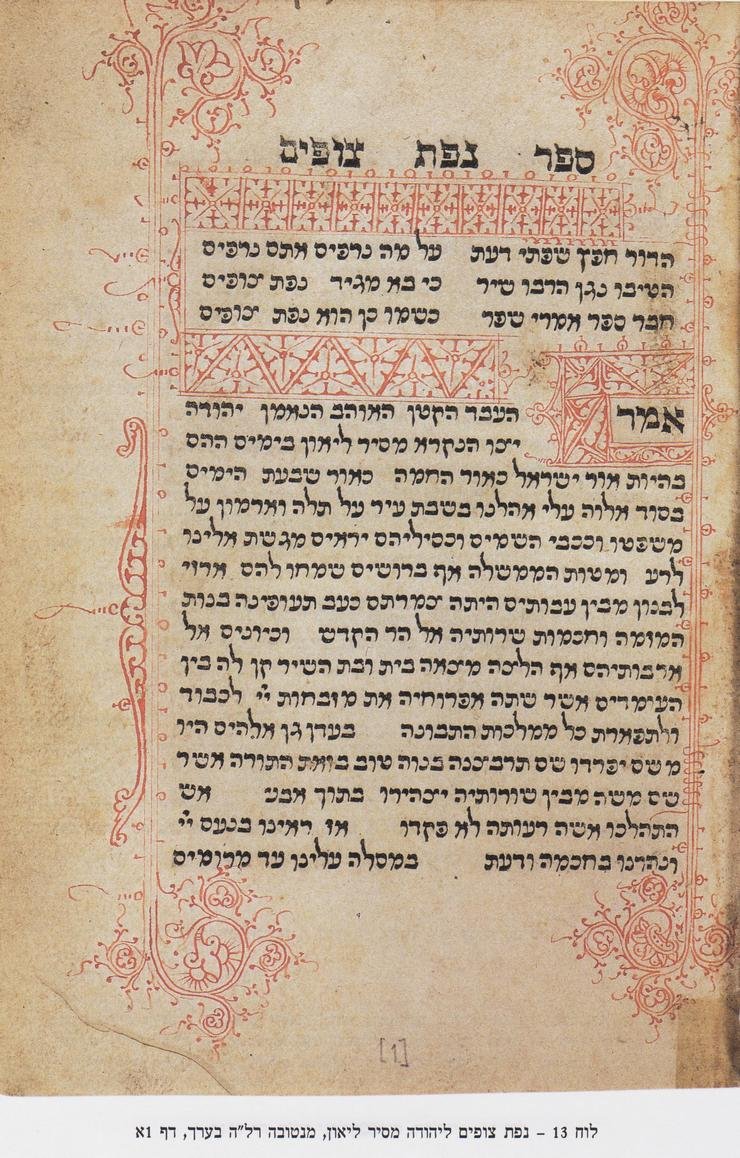 ספר נפת צופים
הדור חפץ שפתי דעת על מה נרפים אתם נרפים
הטיבו נגן הרבו שיר כי בא מגיד נפת צופים
חבר ספר אמרי שפר כשמו כן הוא נפת צופים
אמר העבד הקטן האוהב הנאמן יהודה
יצו הנקרא מסיר ליאון בימים ההם
בהיות אור ישראל כאור החמה כאור שבעת הימים
בסוד אלוה עלי אהלנו בשבת עיר על תלה וארמון על
משפטו וככבי השמים וכסיליהם יראים מגשת אלינו
לרע ומטות הממשלה אף ברושים שמחו להם ארזי
לבנון מבין עבותים היתה צמרתם כעב תעופינה בנות
המזמה וחכמות שרותיה אל הר הקדש וכיונים אל
ארבותיהם אף הליכה מצאה בית ובת השיר קן לה בין
העומדים אשר שתה אפרוחיה את מזבחות יי לכבוד
ולתפארת כל ממלכות התבונה בעדן גן אלהים היו
משם יפרדו שם תרבצנה בנוה טוב בזאת התורה אשר
שם משה מבין שורותיה יצהירו בתוך אבני אש
התהלכו אשה רעותה לא פקדו אז ראינו בנעם יי
ונהרנו בחכמה ודעת במסלה עלינו עד מרומים
[1]
לוח 13 – נפת צופים ליהודה מסיר ליאון, מנטובה רל"ה בערך, דף 1א